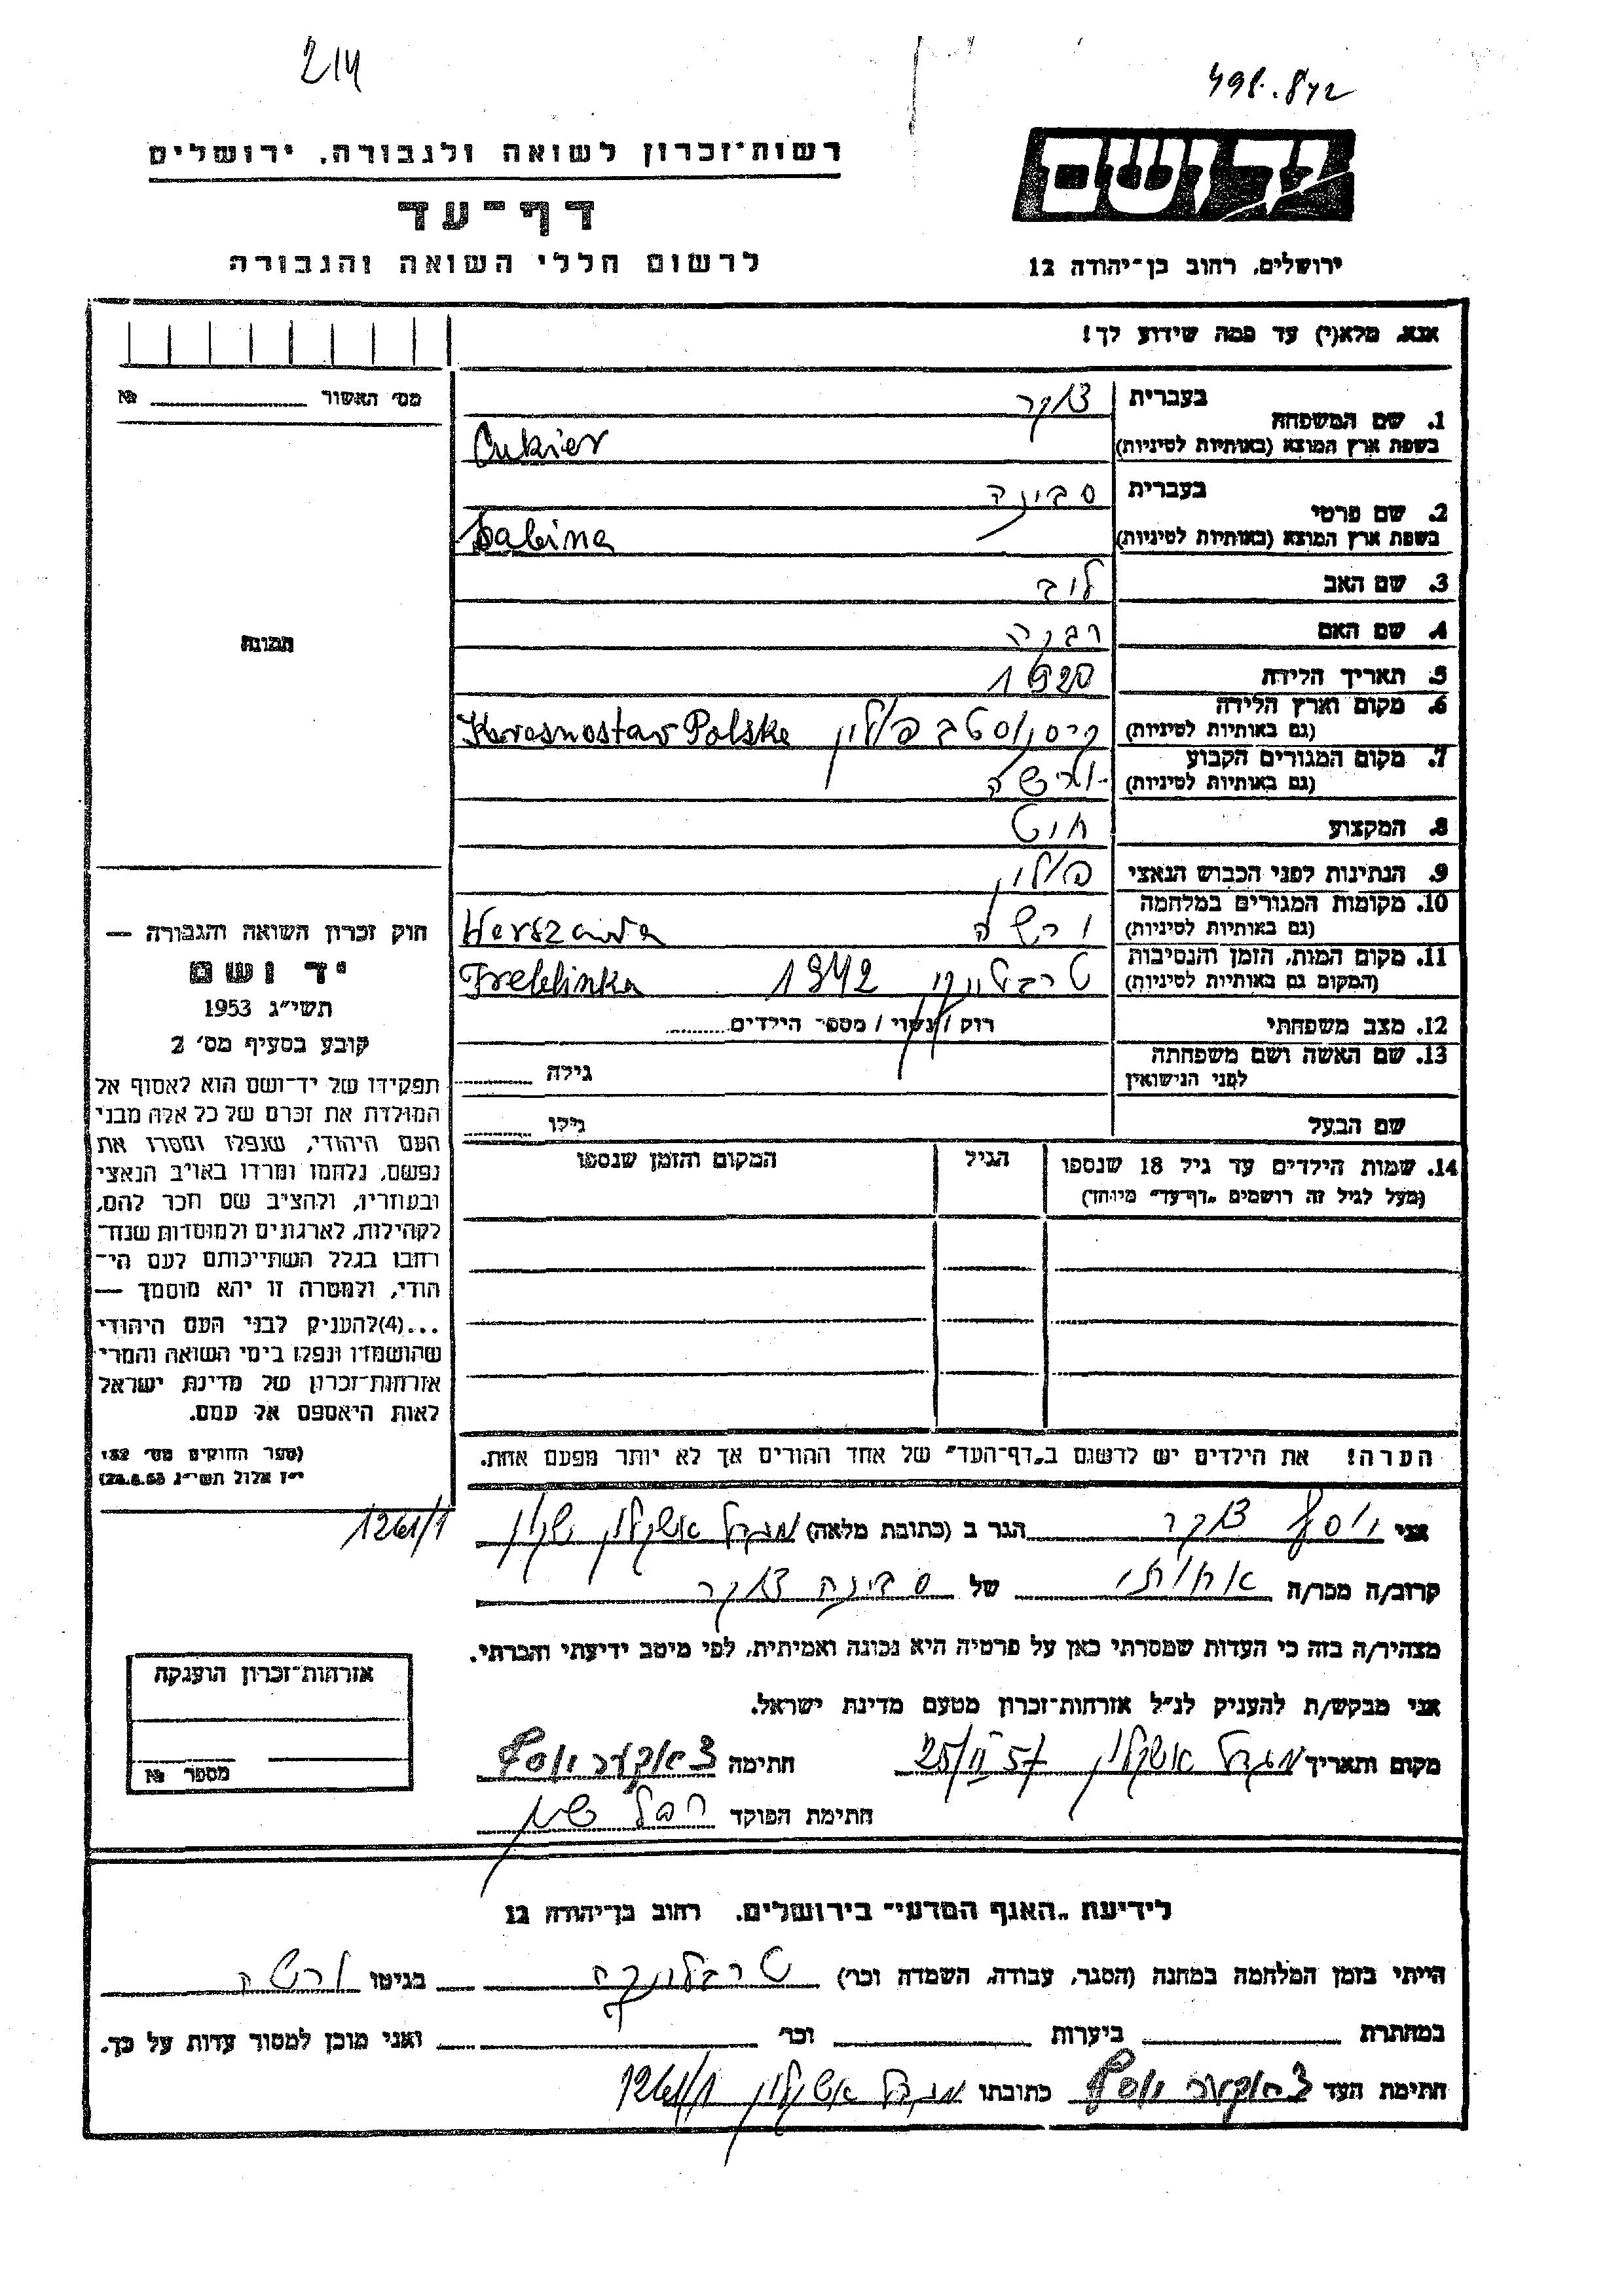 214
498.842
רשות־זכרון לשואה ולגבורה, ירושלים
יד ושם
דף־עד
לרשום חללי השואה והגבורה
ירושלים, רחוב בן־יהודה 12
אנא, מלא(י) עד כמה שידוע לך!
מס׳ האשור №
1. שם המשפחה בעברית צוקר
בשפת ארץ המוצא (באותיות לטיניות) Cukier
2. שם פרטי בעברית סבינה
בשפת ארץ המוצא (באותיות לטיניות) Sabina
3. שם האב לייב
4. שם האם רבקה
תמונה
5. תאריך הלידה 1920
6. מקום וארץ הלידה (גם באותיות לטיניות) קרסנוסטב פולין Krasnostav Polska
7. מקום המגורים הקבוע (גם באותיות לטיניות) ורשה
8. המקצוע חייט
9. הנתינות לפני הכבוש הנאצי פולין
10. מקומות המגורים במלחמה (גם באותיות לטיניות) ורשה Warszawa
11. מקום המות, הזמן והנסיבות (המקום גם באותיות לטיניות) טרבלינקה 1942 Treblinka
12. מצב משפחתי רוק / נשוי / מספר הילדים
13. שם האשה ושם משפחתה לפני הנישואין גילה
שם הבעל גילו
14. שמות הילדים עד גיל 18 שנספו הגיל המקום והזמן שנספו
(מעל לגיל זה רושמים „דף־עד״ מיוחד)
חוק זכרון השואה והגבורה —
יד ושם
תשי״ג 1953
קובע בסעיף מס׳ 2
תפקידו של יד־ושם הוא לאסוף אל
המולדת את זכרם של כל אלה מבני
העם היהודי, שנפלו ומסרו את
נפשם, נלחמו ומרדו באויב הנאצי
ובעוזריו, ולהציב שם וזכר להם,
לקהילות, לארגונים ולמוסדות שנח־
רבו בגלל השתייכותם לעם הי־
הודי, ולמטרה זו יהא מוסמך —
...(4)להעניק לבני העם היהודי
שהושמדו ונפלו בימי השואה והמרי
אזרחות־זכרון של מדינת ישראל
לאות היאספם אל עמם.
(ספר החוקים מס׳ 132,
י״ז אלול תשי״ג 28.8.53)
הערה! את הילדים יש לרשום ב„דף־העד״ של אחד ההורים אך לא יותר מפעם אחת.
אני יוסף צוקר הגר ב (כתובת מלאה) מגדל אשקלון שכון 1261/1
קרוב/ה מכר/ה אחותי של סבינה צוקר
מצהיר/ה בזה כי העדות שמסרתי כאן על פרטיה היא נכונה ואמיתית, לפי מיטב ידיעתי והכרתי.
אני מבקש/ת להעניק לנ״ל אזרחות־זכרון מטעם מדינת ישראל.
מקום ותאריך מגדל אשקלון 25/II 57 חתימה צוקער יוסף
חתימת הפוקד
אזרחות־זכרון הוענקה
מספר №
לידיעת „האגף המדעי״ בירושלים, רחוב בן־יהודה 12
הייתי בזמן המלחמה במחנה (הסגר, עבודה, השמדה וכו׳) טרבלינקה בגיטו ורשה
במחתרת ביערות וכו׳ ואני מוכן למסור עדות על כך.
חתימת העד צוקער יוסף כתובתו מגדל אשקלון 1261/1